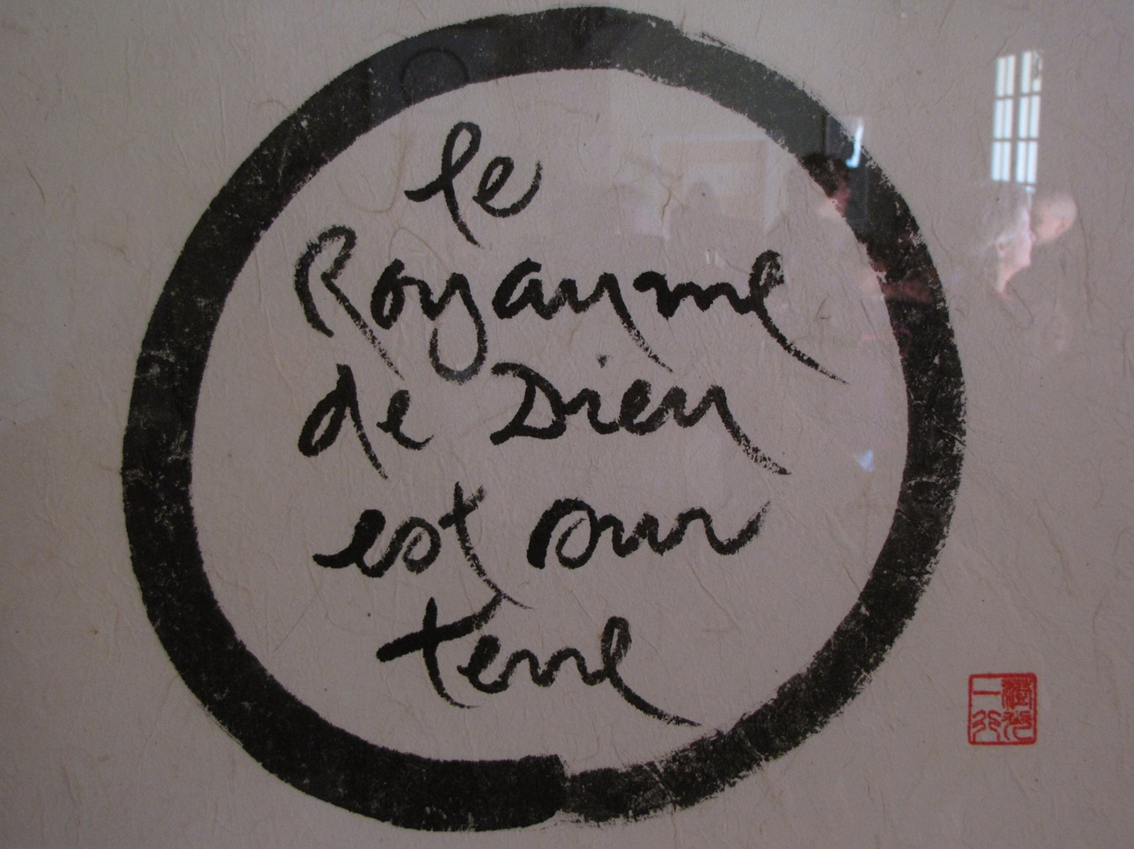 le
Royaume
de Dieu
est sur
terre